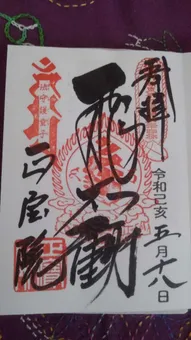 奉拝
令和己亥 五月十八日
飛不動
正宝院